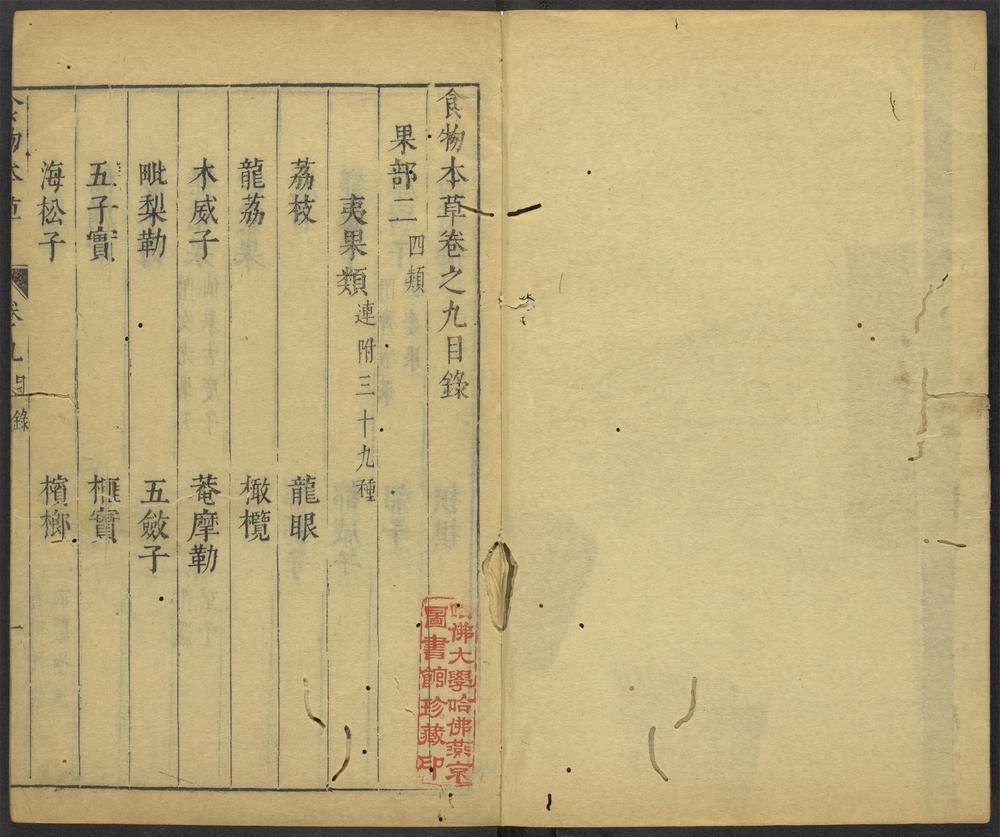 食物本草卷之九目錄
果部二四類
夷果類連附三十九種
荔枝 龍眼
龍荔 橄欖
木威子 菴摩勒
毗梨勒 五斂子
五子實 榧實
海松子 檳榔
食物本草 卷九目錄 一
哈佛大學哈佛燕京
圖書館珍藏印